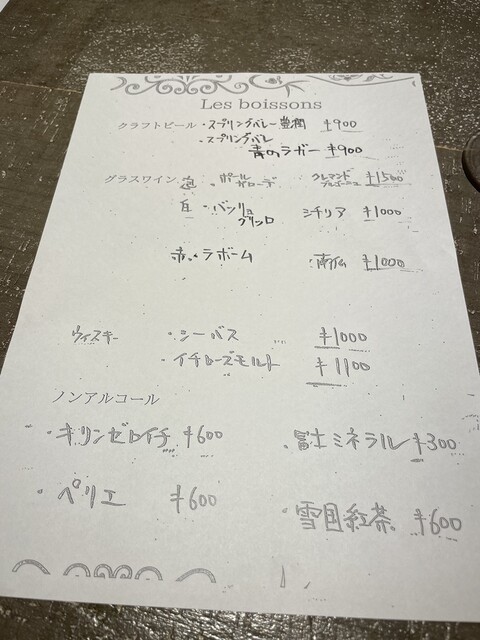 Les boissons
クラフトビール ・スプリングバレー 豊潤 ¥900
・スプリングバレー
青のラガー ¥900
グラスワイン 泡 ・ポール ガローデ クレマンド ブルゴーニュ ¥1500
白 ・バンリュ グリッロ シチリア ¥1000
赤 ・ラボーム ・南仏 ¥1000
ウィスキー ・シーバス ¥1000
・イチローズモルト ¥1100
ノンアルコール
・キリンゼロイチ ¥600 ・富士ミネラル ¥300
・ペリエ ¥600 ・雪国紅茶 ¥600